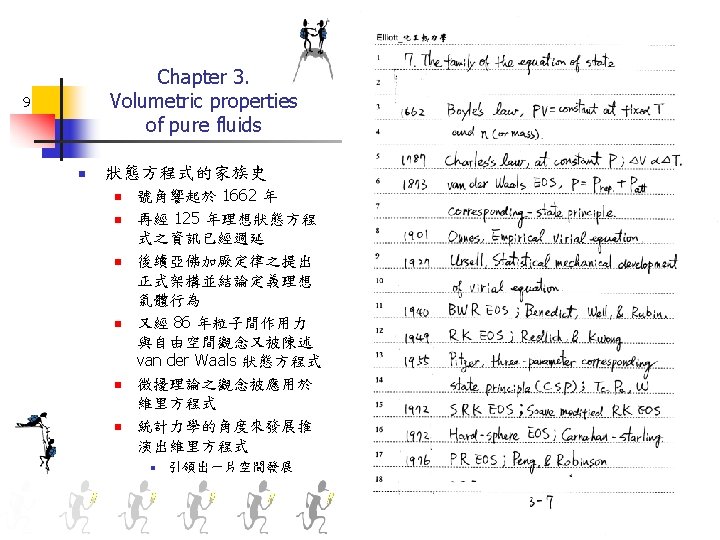 Chapter 3.
Volumetric properties
of pure fluids
9
狀態方程式的家族史
號角響起於 1662 年
再經 125 年理想狀態方程
式之資訊已經週延
後續亞佛加厥定律之提出
正式架構並結論定義理想
氣體行為
又經 86 年粒子間作用力
與自由空間觀念又被陳述
van der Waals 狀態方程式
微擾理論之觀念被應用於
維里方程式
統計力學的角度來發展推
演出維里方程式
引領出一片空間發展
Elliott_化工熱力學
1 7. The family of the equation of state
2
3 1662 Boyle's law, PV = constant at fixed T
4 and n (or mass).
5 1787 Charles's law, at constant P; △V ∝ △T.
6 1873 van der Waals EOS, P = Prep. + Patt
7 corresponding-state principle.
8 1901 Onnes, Empirical virial equation
9 1927 Ursell, Statistical mechanical development
10 of virial equation.
11 1940 BWR EOS; Benedict, Well, & Rubin.
12 1949 RK EOS; Redlich & Kwong
13 1955 Pitzer, three-parameter corresponding
14 state principle (CSP); Tc, Pc, W
15 1972 SRK EOS; Soave modified RK EOS
16 1972 Hard-sphere EOS; Carnahan-starling.
17 1976 PR EOS; Peng & Robinson
18
3-7